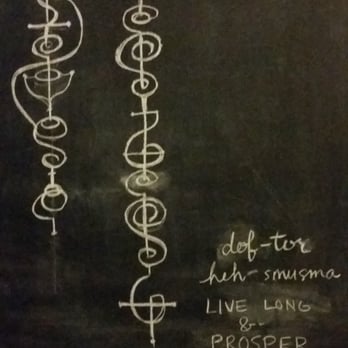 dof-tor
heh-smusma
LIVE LONG
&
PROSPER